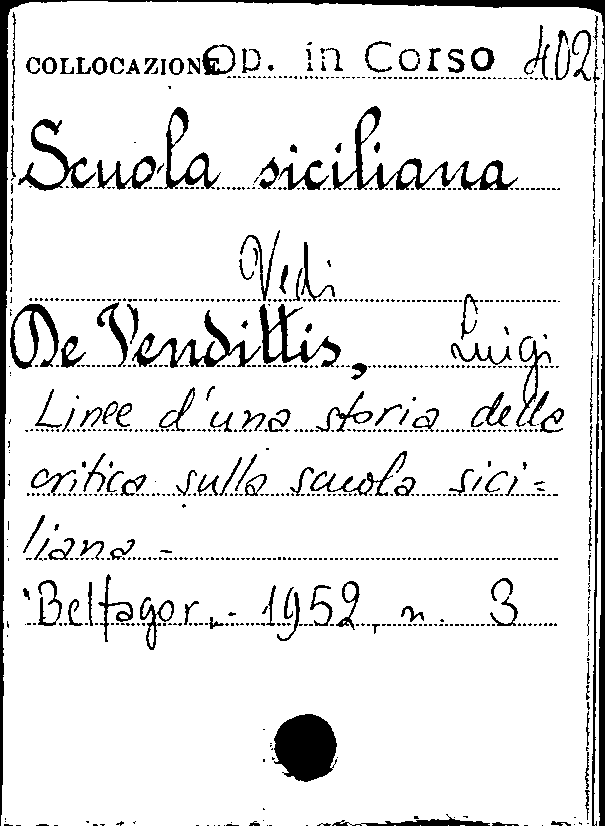 COLLOCAZIONE Op. in Corso 402
Scuola siciliana
Vedi
De Vendittis, Luigi
Linee d'una storia della
critica sulla scuola sici=
liana -
"Belfagor,- 1952, n. 3